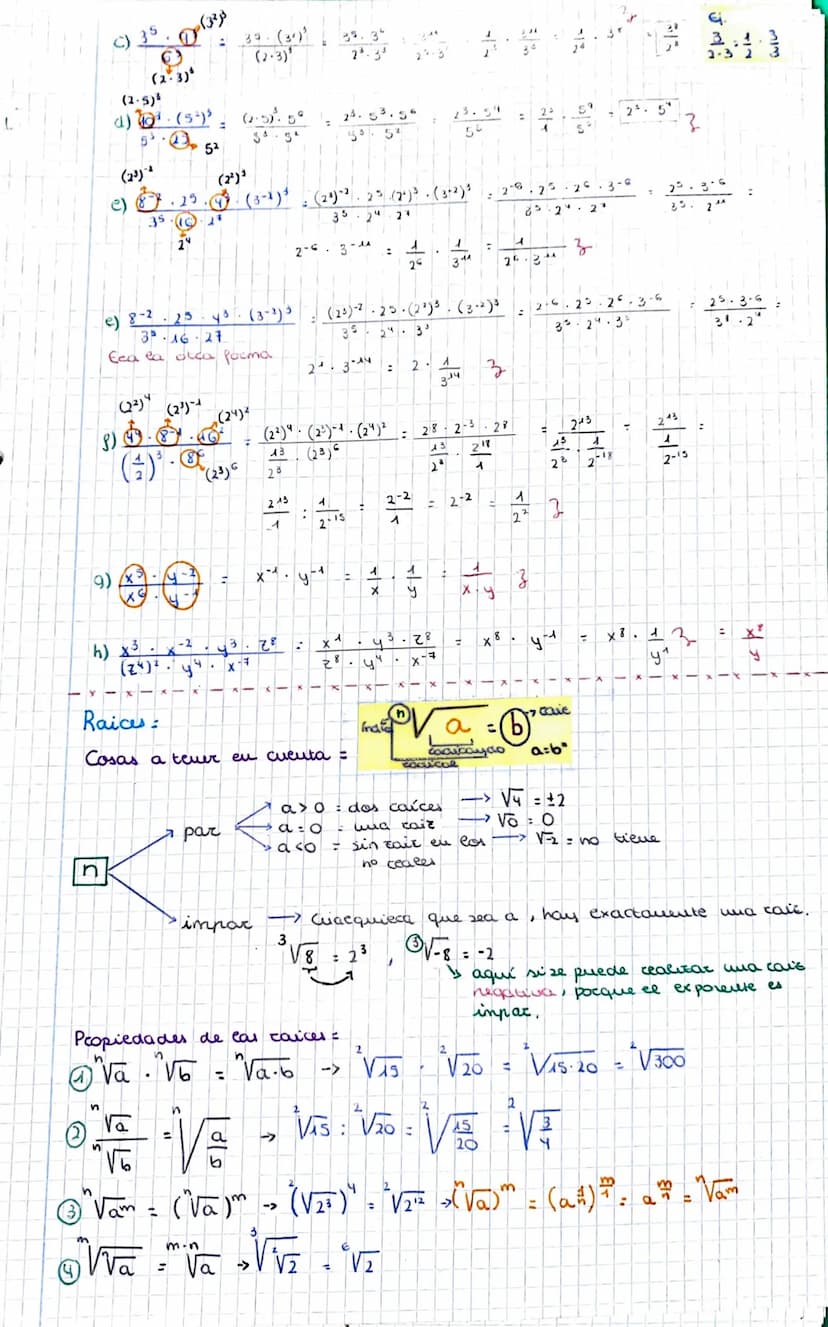 c) 3⁵ · 9³ (3²)³ / 6³ (2·3)³ = 3⁵ · (3²)³ / (2·3)³ = 3⁵ · 3⁶ / 2³ · 3³
Ej. 3/2·3 = 1/2 · 3/3
(2·5)³
d) 10³ · (5²)³ / 5³ · 25 5² = (2·5)³ · 5⁶ / 5³ · 5² = 2³ · 5³ · 5⁶ / 5³ · 5² = 2³ · 5⁹ / 5⁵ = 2³/1 · 5⁹/5⁵ = 2³ · 5⁴
(2³)⁻² (2²)³
e) 8⁻² · 2⁵ · 4³ · (3⁻²)³ / 3⁵ · 16 · 2⁷ = (2³)⁻² · 2⁵ · (2²)³ · (3⁻²)³ / 3⁵ · 2⁴ · 2⁷ = 2⁻⁶ · 2⁵ · 2⁶ · 3⁻⁶ / 3⁵ · 2⁴ · 2⁷ = 2⁵ · 3⁻⁶ / 3⁵ · 2¹¹ =
2⁴
2⁻⁶ · 3⁻¹¹ = 1/2⁶ · 1/3¹¹ = 1 / 2⁶ · 3⁻¹¹
e) 8⁻² · 2⁵ · 4³ · (3⁻²)³ / 3⁵ · 16 · 27 = (2³)⁻² · 2⁵ · (2²)³ · (3⁻²)³ / 3⁵ · 2⁴ · 3³ = 2⁻⁶ · 2⁵ · 2⁶ · 3⁻⁶ / 3⁵ · 2⁴ · 3³ = 2⁵ · 3⁻⁶ / 3⁸ · 2⁴ =
Era la otra forma
2¹ · 3⁻¹⁴ = 2 · 1/3¹⁴
(2²)⁴ (2³)⁻¹ (2⁴)²
f) 4⁴ · 8⁻¹ · 16² / (1/2)³ · 8⁶ (2³)⁶ = (2²)⁴ · (2³)⁻¹ · (2⁴)² / 1³/2³ · (2³)⁶ = 2⁸ · 2⁻³ · 2⁸ / 1³/2³ · 2¹⁸/1 = 2¹³ / 1³/2³ · 1/2⁻¹⁸ = 2¹³ / 1/2⁻¹⁵ =
2¹³/1 : 1/2⁻¹⁵ = 2⁻²/1 = 2⁻² = 1/2²
g) x⁵ · y⁻² / x⁶ · y⁻¹ = x⁻¹ · y⁻¹ = 1/x · 1/y = 1/x·y
h) x³ · x⁻² · y³ · z⁸ / (z⁴)² · y⁴ · x⁻⁷ = x¹ · y³ · z⁸ / z⁸ · y⁴ · x⁻⁷ = x⁸ · y⁻¹ = x⁸ · 1/y¹ = x⁸/y
Raices:
índice ⁿ√a = b → raiz
Cosas a tener en cuenta =
radicando a=bⁿ
radical
a>0 = dos raíces → √4 = ±2
par
a=0 = una raiz → √0 = 0
a<0 = sin raiz en los → √-2 = no tiene
no reales
n
impar → Cualquiera que sea a, hay exactamente una raiz.
³√8 = 2³ , ³√-8 = -2
↳ aquí si se puede realizar una raiz
negativa, porque el exponente es
impar.
Propiedades de las raíces =
① ⁿ√a · ⁿ√b = ⁿ√a·b → ²√15 · ²√20 = ²√15·20 = ²√300
② ⁿ√a / ⁿ√b = ⁿ√a/b → ²√15 : ²√20 = ²√15/20 = ²√3/4
③ ⁿ√aᵐ = (ⁿ√a)ᵐ → (²√2³)⁴ = ²√2¹² → (ⁿ√a)ᵐ = (a^1/n)^m/1 = a^m/n = ⁿ√aᵐ
④ ᵐ√ⁿ√a = ᵐ·ⁿ√a → ³√²√2 = ⁶√2